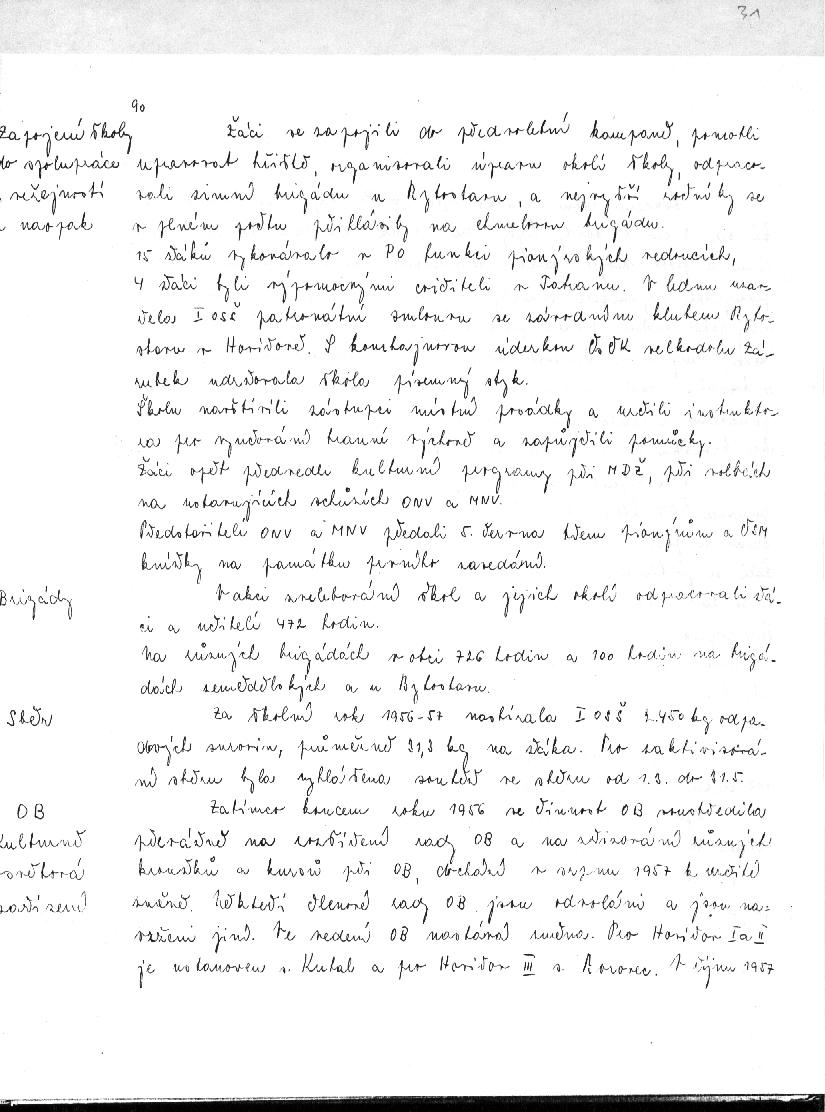 31
90
Zapojení školy
do spolupráce
s veřejností
a naopak
Žáci se zapojili do předvolební kampaně, pomohli
upravovat hřiště, organisovali úpravu okolí školy, odpraco-
vali zimní brigádu u Rybostavu, a nejvyšší ročníky se
v plném počtu přihlásily na chmelovou brigádu.
15 žáků vykonávalo v PO funkci pionýrských vedoucích,
4 žáci byli výpomocnými cvičiteli v Tatranu. V lednu uzav-
řela I OSŠ patronátní smlouvu se závodním klubem Rybo-
stavu v Horšově. S kombajnovou úderkou ČsČK velkodolu Zá-
rubek udržovala škola písemný styk.
Školu navštívili zástupci místní posádky a určili instrukto-
ra pro vyučování branné výchově a zapůjčili pomůcky.
Žáci opět předvedli kulturní programy při MDŽ, při volbách
na ustavujících schůzích ONV a MNV.
Představitelé ONV a MNV předali 5. června všem pionýrům a ČSM
knížky na památku prvního zasedání.
Brigády
V akci zvelebování škol a jejich okolí odpracovali žá-
ci a učitelé 472 hodin.
Na různých brigádách v obci 726 hodin a 100 hodin na brigá-
dách zemědělských a u Rybostavu.
Sběr
Za školní rok 1956-57 nasbírala I OSŠ 2.450 kg odpa-
dových surovin, průměrně 31,3 kg na žáka. Pro zaktivisová-
ní sběru byla vyhlášena soutěž ve sběru od 1.3. do 31.5.
OB
Kulturně
osvětová
zařízení
Zatímco koncem roku 1956 se činnost OB soustředila
převážně na rozšíření rady OB a na zřizování různých
kroužků a kursů při OB, dochází v srpnu 1957 k určité
změně. Někteří členové rady OB jsou odvoláni a jsou na-
vrženi jiní. Ve vedení OB nastává změna. Pro Horšov I a II
je ustanoven s. Kubal a pro Horšov III s. Rovorec. V říjnu 1957